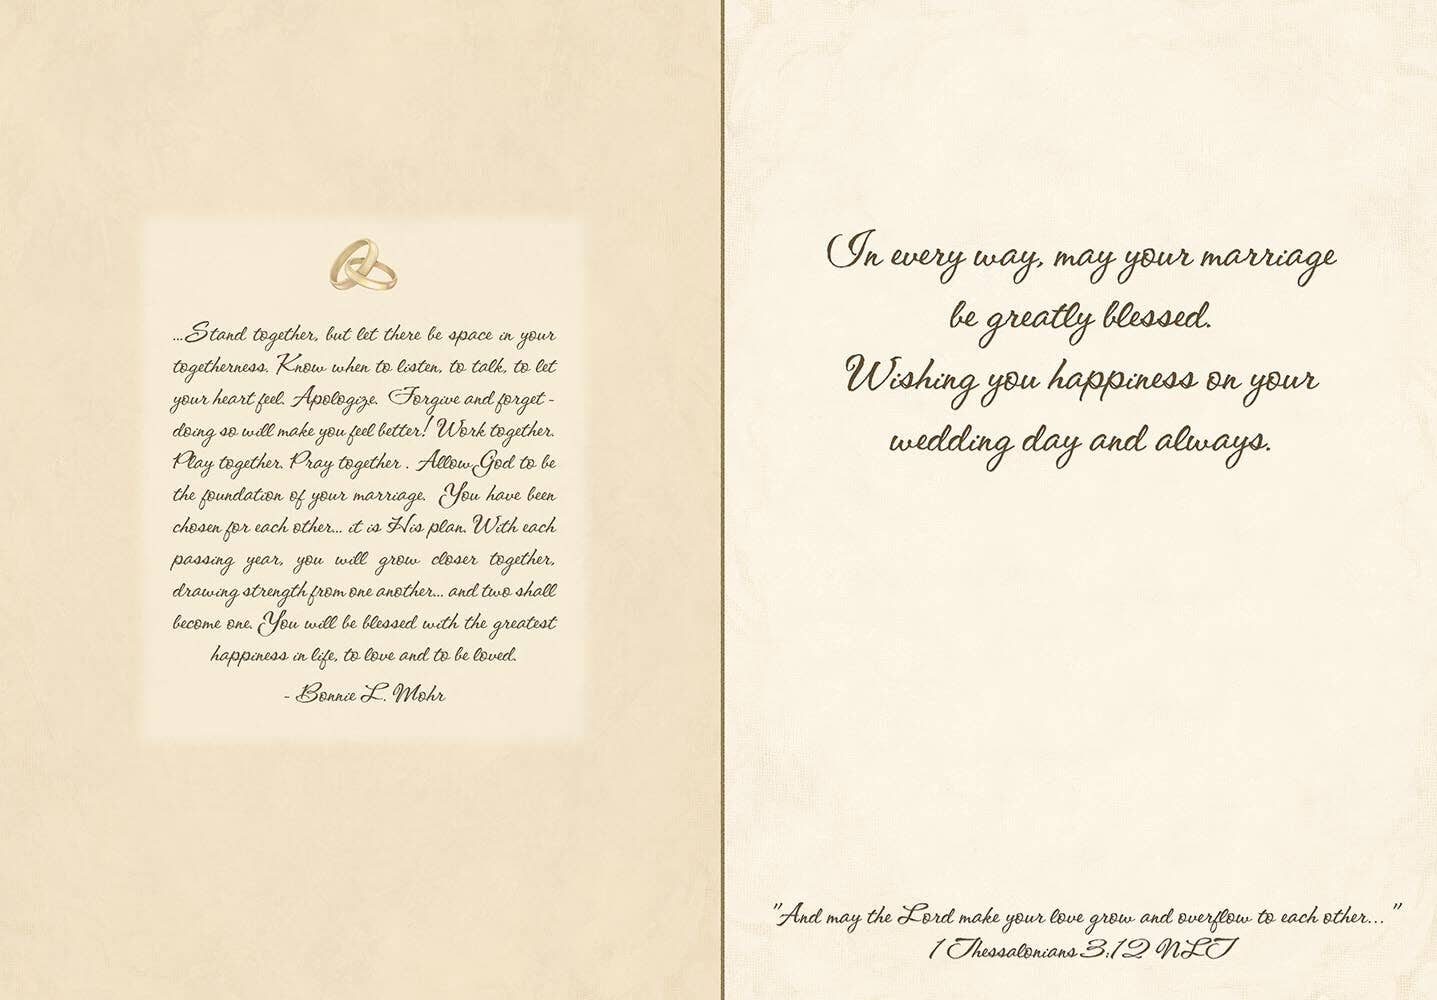 ...Stand together, but let there be space in your
togetherness. Know when to listen, to talk, to let
your heart feel. Apologize. Forgive and forget -
doing so will make you feel better! Work together.
Play together. Pray together . Allow God to be
the foundation of your marriage. You have been
chosen for each other... it is His plan. With each
passing year, you will grow closer together,
drawing strength from one another... and two shall
become one. You will be blessed with the greatest
happiness in life, to love and to be loved.
- Bonnie L. Mohr
In every way, may your marriage
be greatly blessed.
Wishing you happiness on your
wedding day and always.
"And may the Lord make your love grow and overflow to each other... "
1 Thessalonians 3:12 NLT